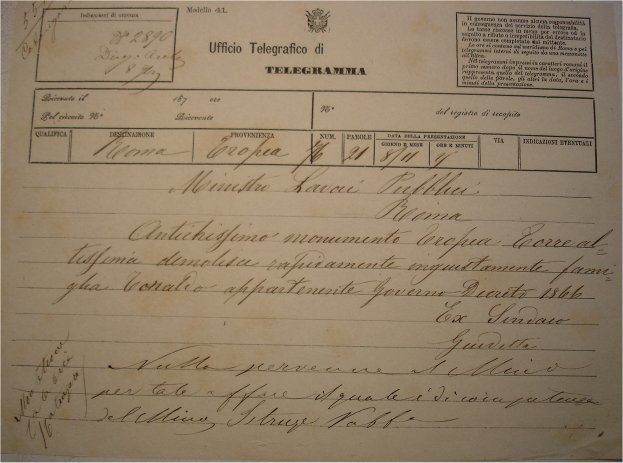 Modello d.L.
Indicazioni di urgenza
N° 2890
Ufficio Telegrafico di
TELEGRAMMA
Il governo non assume alcuna responsabilità
in conseguenza del servizio della telegrafia.
Le tasse riscosse in meno per errore od in
seguito a rifiuto o irreperibilità del destinatario
devono essere completate dal mittente.
Le ore si contano sul meridiano di Roma e pei
telegrammi interni di seguito da una mezzanotte
all'altra.
Nei telegrammi impressi in caratteri romani il
primo numero dopo il nome del luogo d'origine
rappresenta quello del telegramma, il secondo
quello delle parole, gli altri la data, l'ora e i
minuti della presentazione.
Ricevuto il 187 ore
Pel circuito N° Ricevente
N° del registro di recapito
QUALIFICA DESTINAZIONE PROVENIENZA NUM. PAROLE DATA DELLA PRESENTAZIONE VIA INDICAZIONI EVENTUALI
GIORNO E MESE ORE E MINUTI
Roma Tropea 76 21 8/11
Ministro Lavori Pubblici
Roma
Antichissimo monumento Tropea Torre al-
tissima demolisce rapidamente ingiustamente fami-
glia Toraldo appartenente Governo Decreto 1866
Ex Sindaco
Nulla pervenne al Mino
per tale affare il quale è di competenza
del Mino Istruz